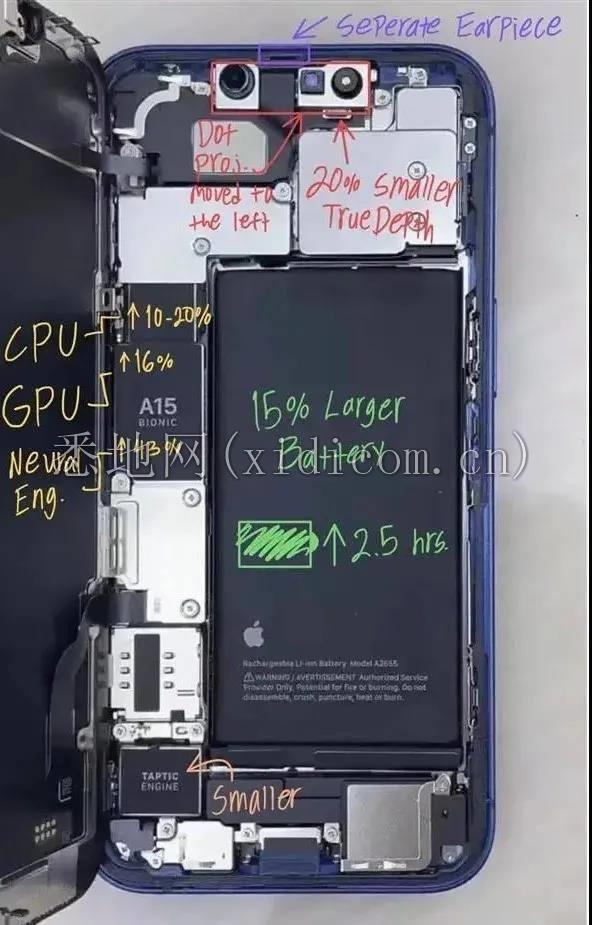 Seperate Earpiece
Dot
proj...
moved to
the left
20% Smaller
TrueDepth
CPU
↑10-20%
↑16%
GPU
A15
BIONIC
↑43%
Neural
Eng.
15% Larger
Battery
悉地网(xidicom.cn)
↑2.5 hrs.
Rechargeable Li-ion Battery Model A2655
WARNING / AVERTISSEMENT Authorized Service
Provider Only. Potential for fire or burning. Do not
disassemble, crush, puncture, heat or burn.
TAPTIC
ENGINE
Smaller